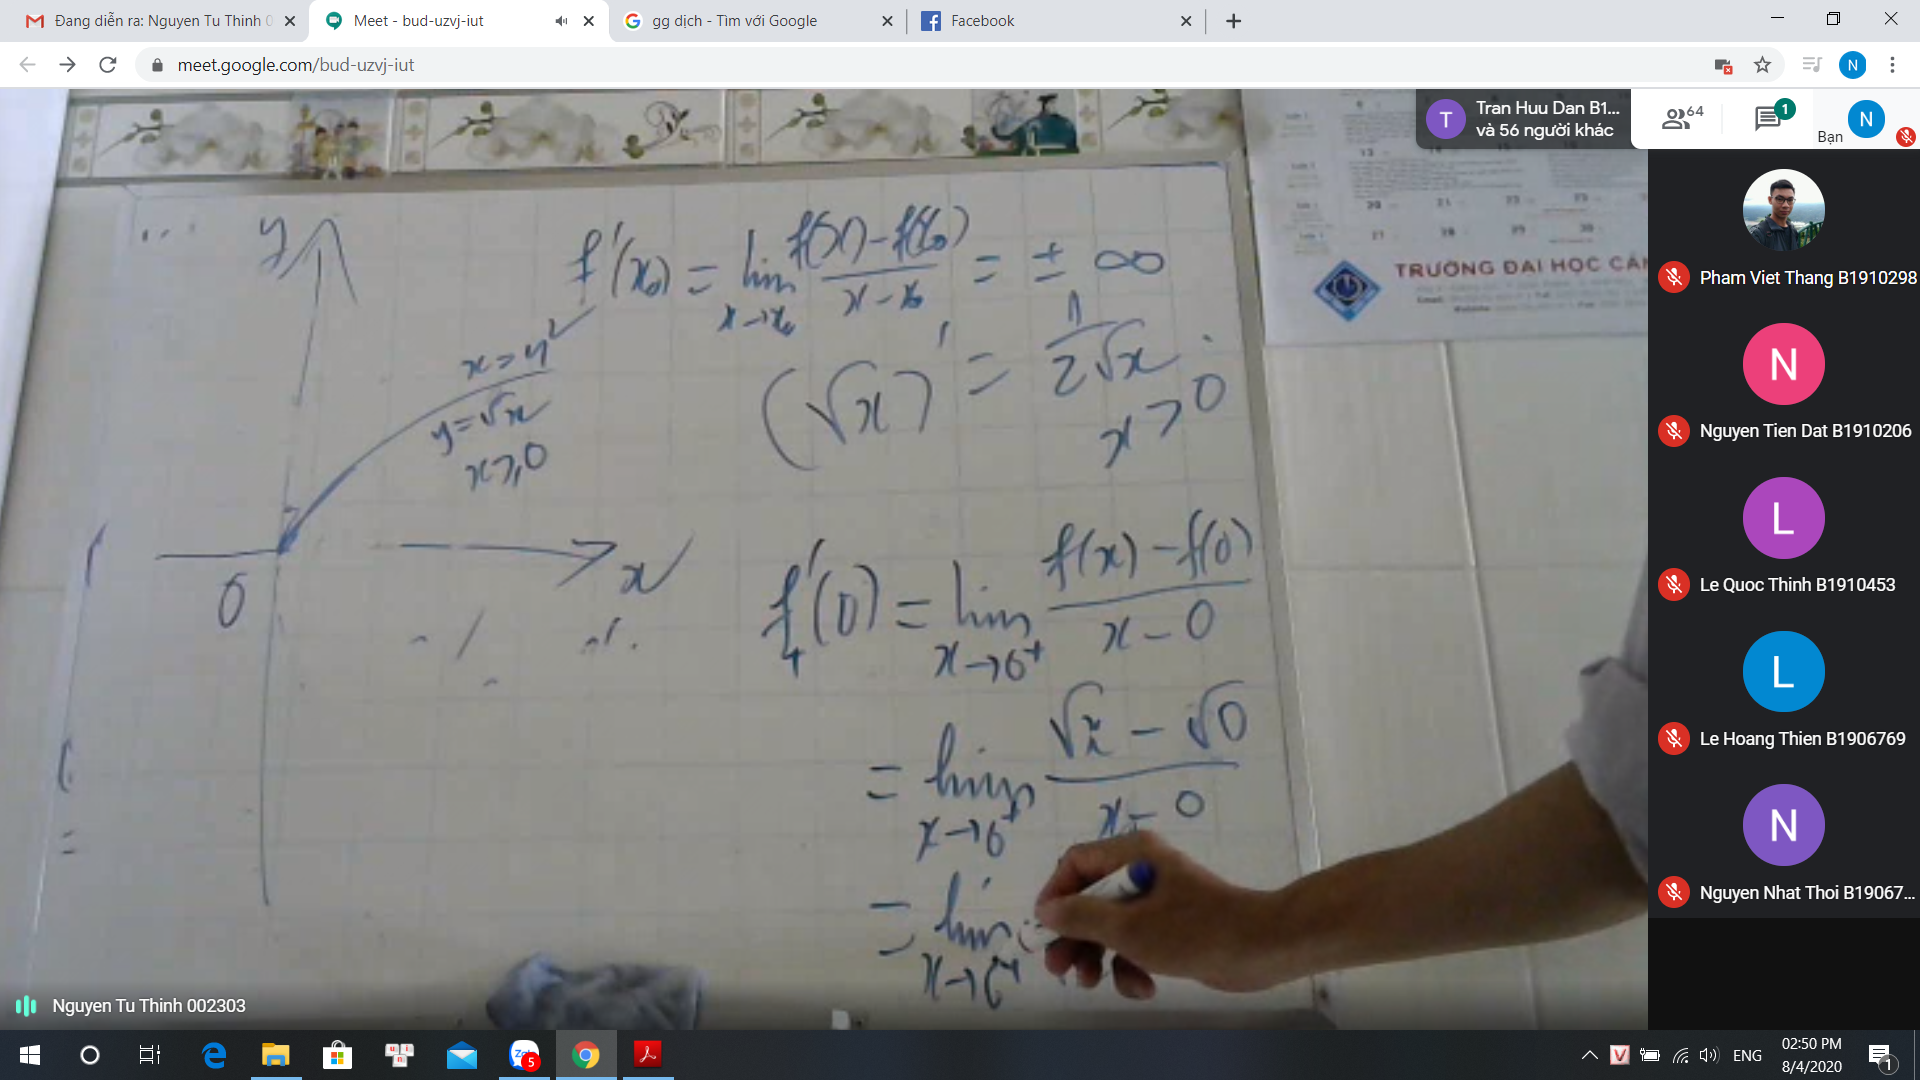 Đang diễn ra: Nguyen Tu Thinh 0
Meet - bud-uzvj-iut
gg dịch - Tìm với Google
Facebook
meet.google.com/bud-uzvj-iut
N
T
Tran Huu Dan B1...
và 56 người khác
64
1
Bạn
N
TRƯỜNG ĐẠI HỌC CẦN
y
f'(x₀) = lim x→x₀ (f(x) - f(x₀))/(x - x₀) = ± ∞
x = y²
y = √x
x ⩾ 0
(√x)' = 1/(2√x)
x > 0
0
x
f'₊(0) = lim x→0⁺ (f(x) - f(0))/(x - 0)
= lim x→0⁺ (√x - √0)/(x - 0)
= lim x→0⁺
Pham Viet Thang B1910298
N
Nguyen Tien Dat B1910206
L
Le Quoc Thinh B1910453
L
Le Hoang Thien B1906769
N
Nguyen Nhat Thoi B19067...
Nguyen Tu Thinh 002303
5
ENG
02:50 PM
8/4/2020
1